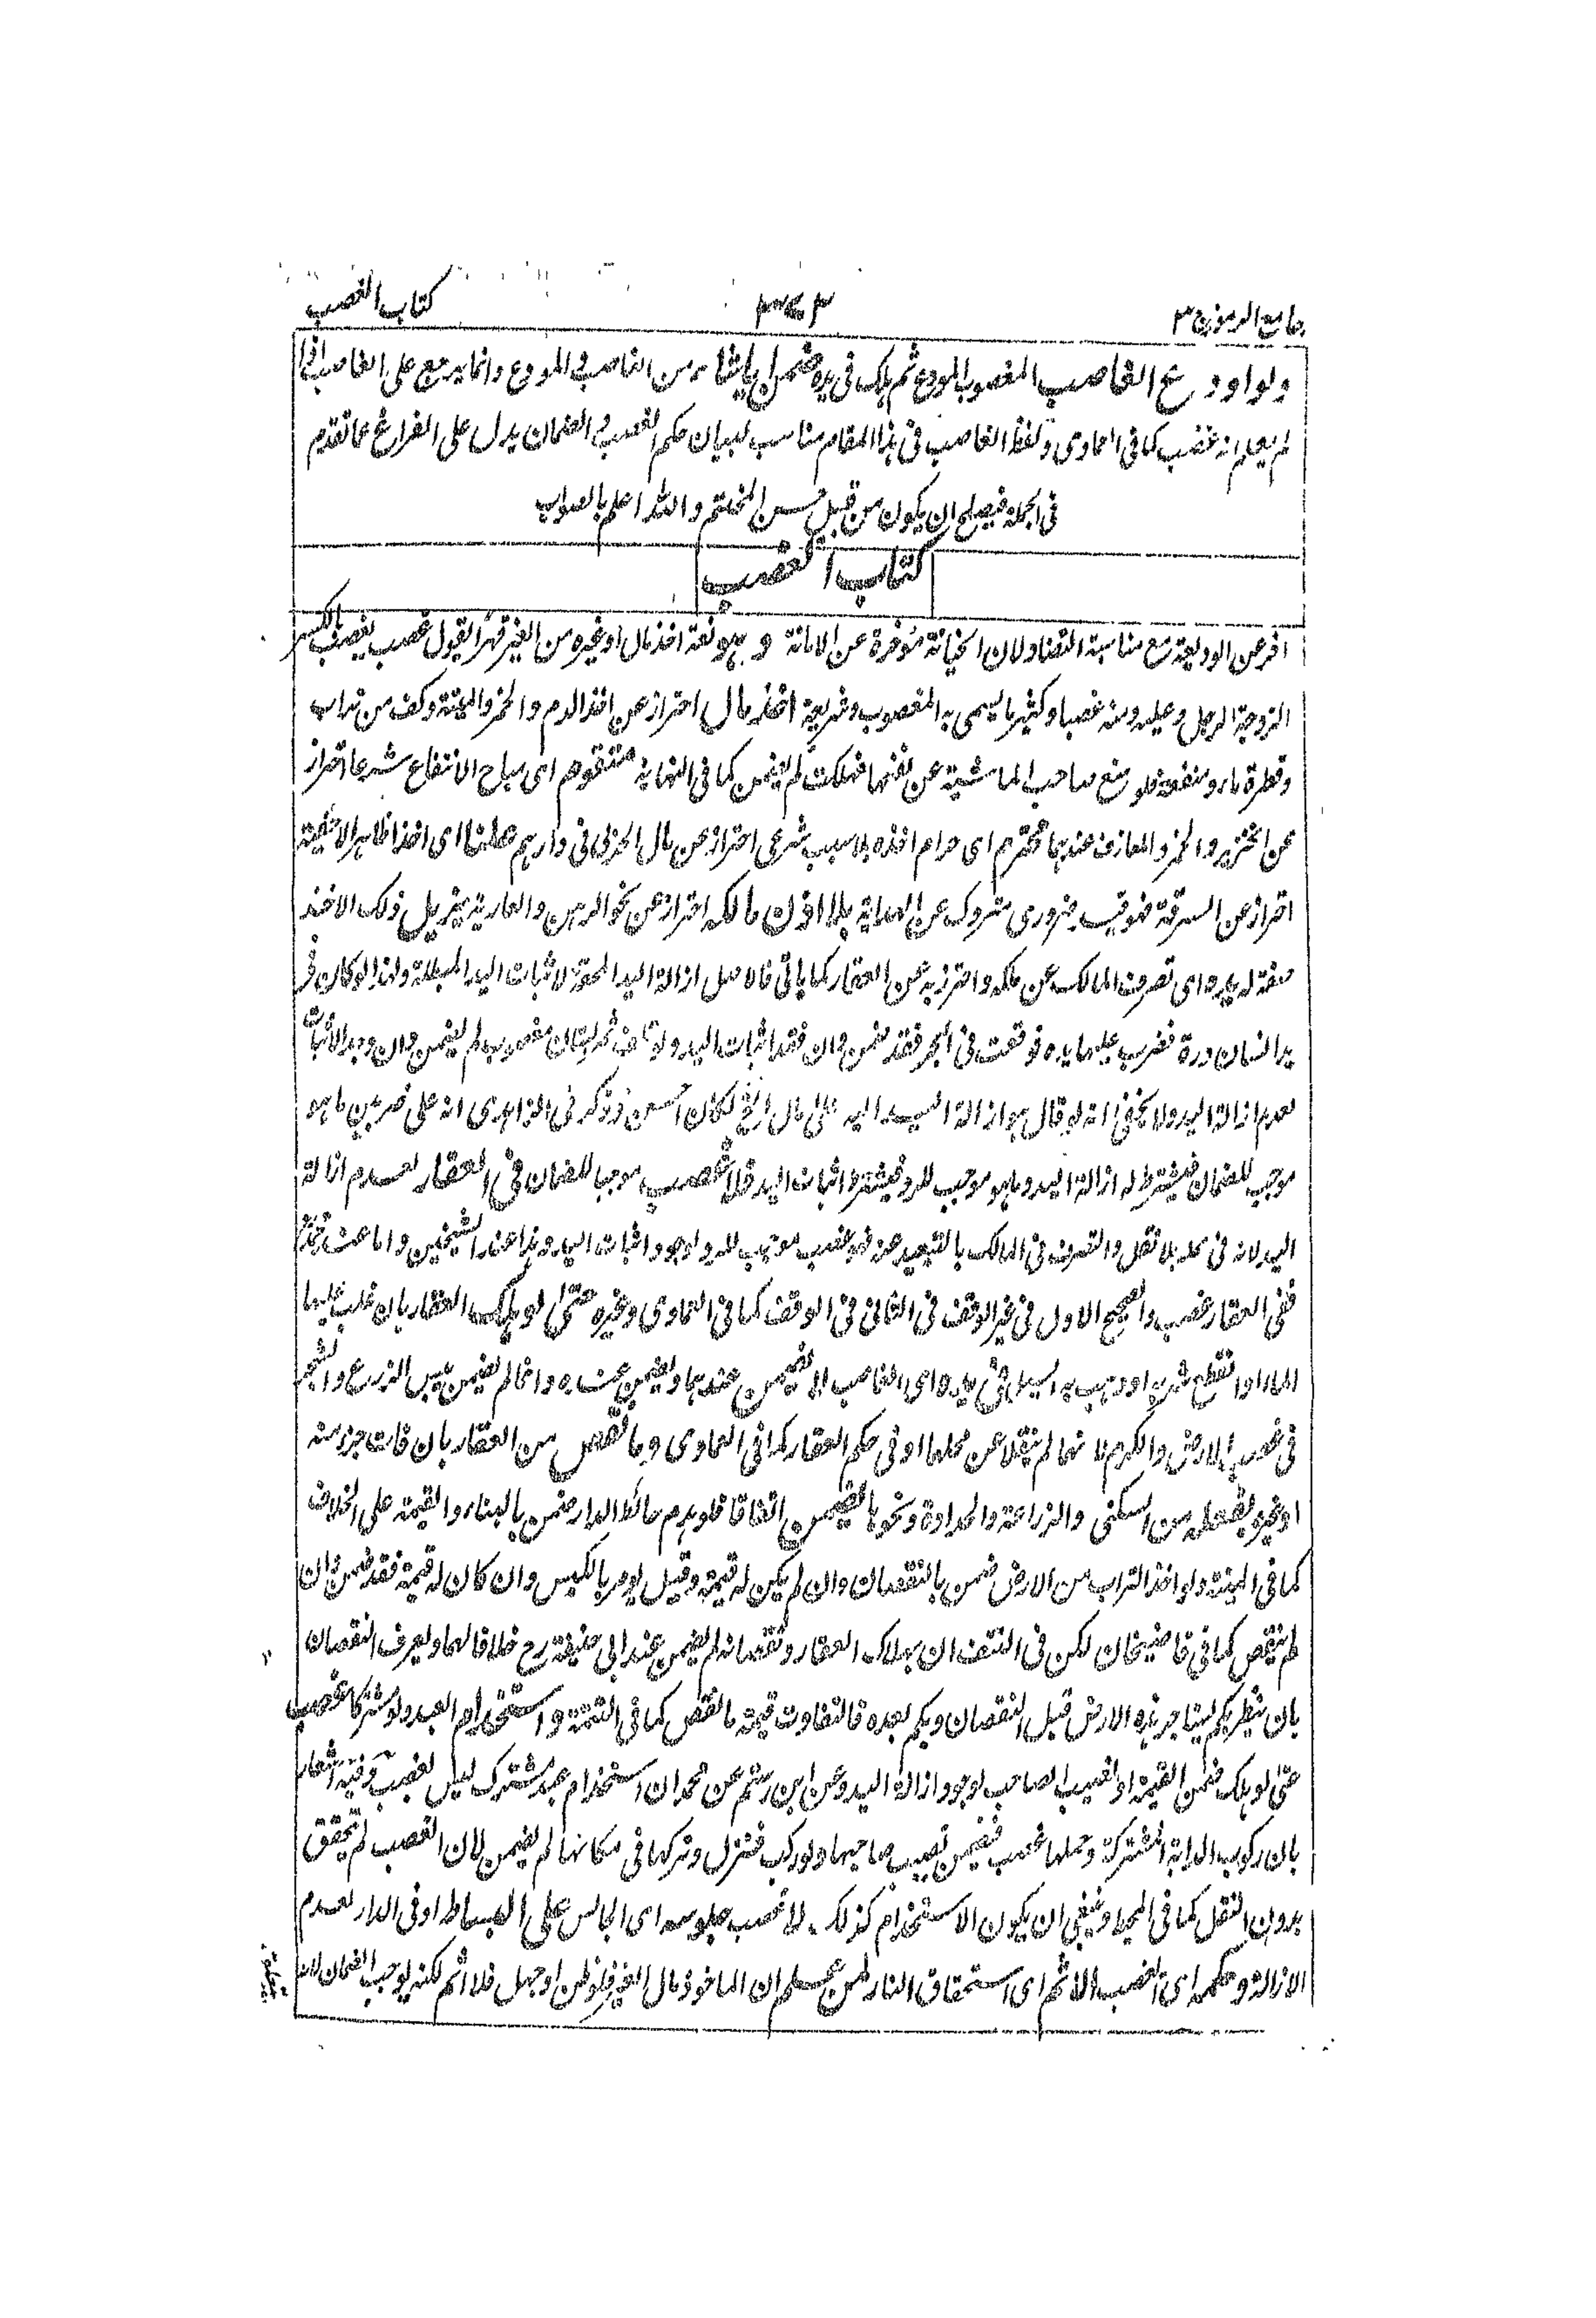 جامع الرموز ج ٣
٣٧٣
كتاب الغصب
ولو اودع الغاصب المغصوب المودع ثم هلك فى يده ضمن ايا شاء من الغاصب و المودع وانما يرجع على الغاصب اذا
لم يعلم انه غصب كما فى العمادى ولفظ الغاصب فى هذا المقام مناسب لبيان حكم الغصب و الضمان يدل على الفراغ عما تقدم
فى الجملة فيصلح ان يكون من قبيل حسن المختتم والله اعلم بالصواب
كتاب الغصب
اخر عن الوديعة مع مناسبة التضاد لان الخيانة مؤخرة عن الامانة و هو لغة اخذ مال او غيره من الغير قهرا يقول غصب يغصب بالكسر
الزوجة الرجل وعليه ومنه غصبا وكثيرا ما يسمى به المغصوب وشريعة اخذ مال احتراز عن اخذ الدم والخمر والميتة وكف من تراب
وقطرة ماء ومنفعة فلو منع صاحب الماشية عن نفعها فهلكت لم يضمن كما فى النهاية متقوم اى مباح الانتفاع شرعا احتراز
عن الخنزير والخمر والمعازف عندهما محترم اى حرام اخذه بلا سبب شرعى احتراز عن مال الحربى فى دارهم علنا اى اخذا ظاهرا
احتراز عن السرقة ضرورى متروك عن الهداية بلا اذن مالكه احتراز عن نحو الرهن والعارية يزيل ذلك الاخذ
صفة له يده اى تصرف المالك عن ملكه واحترز به عن العقار كما ياتى فالاصل ازالة اليد المحقة لا اثبات اليد المبطلة ولذا لو كان فى
يد انسان درة فضرب على يده فوقعت فى البحر فقد ضمن وان فقد اثبات اليد ولو تلف ثمر بستان مغصوب لم يضمن وان وجد الاثبات
لعدم ازالة اليد ولا يخفى انه لو قال هو ازالة اليد على مال الخ لكان احسن وذكر فى الزاهدى انه على ضربين ما هو
موجب للضمان فيشترط له ازالة اليد وما هو موجب للرد فيشترط اثبات اليد فلا غصب موجبا للضمان فى العقار لعدم ازالة
اليد لانه فى محله بلا نقل والتصرف فى المالك بالتبعيد عنه فهو غصب موجب للرد لوجود اثبات اليد وهذا عند الشيخين واما عند محمد
ففى العقار غصب والصحيح الاول فى غير الوقف و الثانى فى الوقف كما فى العمادى وغيره حتى لو هلك العقار بان غلب عليها
الماء او انقطع شربه او ذهب به السيل فى يده اى الغاصب لا يضمن عندهما ويضمن عنده وانما لم يضمن يبس الزرع والشجر
فى غصب الارض والكرم لانهما لم ينقلا عن محلهما او فى حكم العقار كما فى العمادى وما نقص من العقار بان فات جزء منه
او تغير بفعله من السكنى والزراعة والحدادة ونحوها يضمن اتفاقا فلو هدم حائط الدار ضمن بالبناء والقيمة على الخلاف
كما فى المنية ولو اخذ التراب من الارض ضمن بالنقصان وان لم يكن له قيمة وقيل يومر بالكبس وان كان له قيمة فقد ضمن وان
لم ينقص كما فى قاضيخان لكن فى النتف ان بهلاك العقار ونقصانه لم يضمن عند ابى حنيفة رح خلافا لهما ويعرف النقصان
بان ينظر بكم يستاجر هذه الارض قبل النقصان وبكم بعده فالتفاوت قيمة ما نقص كما فى التتمة و استخدام العبد ولو مشتركا غصب
حتى لو هلك ضمن القيمة او نصيب الصاحب لوجود ازالة اليد وعن ابن رستم عن محمد ان استخدام عبد مشترك ليس بغصب وفيه اشعار
بان ركوب الدابة المشتركة وحملها غصب فيضمن نصيب صاحبها ولو ركب فنزل وتركها فى مكانها لم يضمن لان الغصب لم يتحقق
بدون النقل كما فى المحيط وينبغى ان يكون الاستخدام كذلك لا غصب جلوسه اى الجالس على البساط او فى الدار لعدم
الازالة وحكمه اى الغصب الاثم اى استحقاق النار لمن علم ان الماخوذ مال الغير فلو ظن او جهل فلا اثم لكنه يوجب الضمان لانه